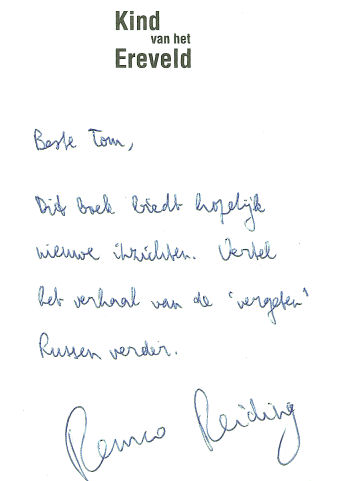 Kind
van het
Ereveld
Beste Tom,
Dit boek biedt hopelijk
nieuwe inzichten. Vertel
het verhaal van de 'vergeten'
Russen verder.
Remco Reiding